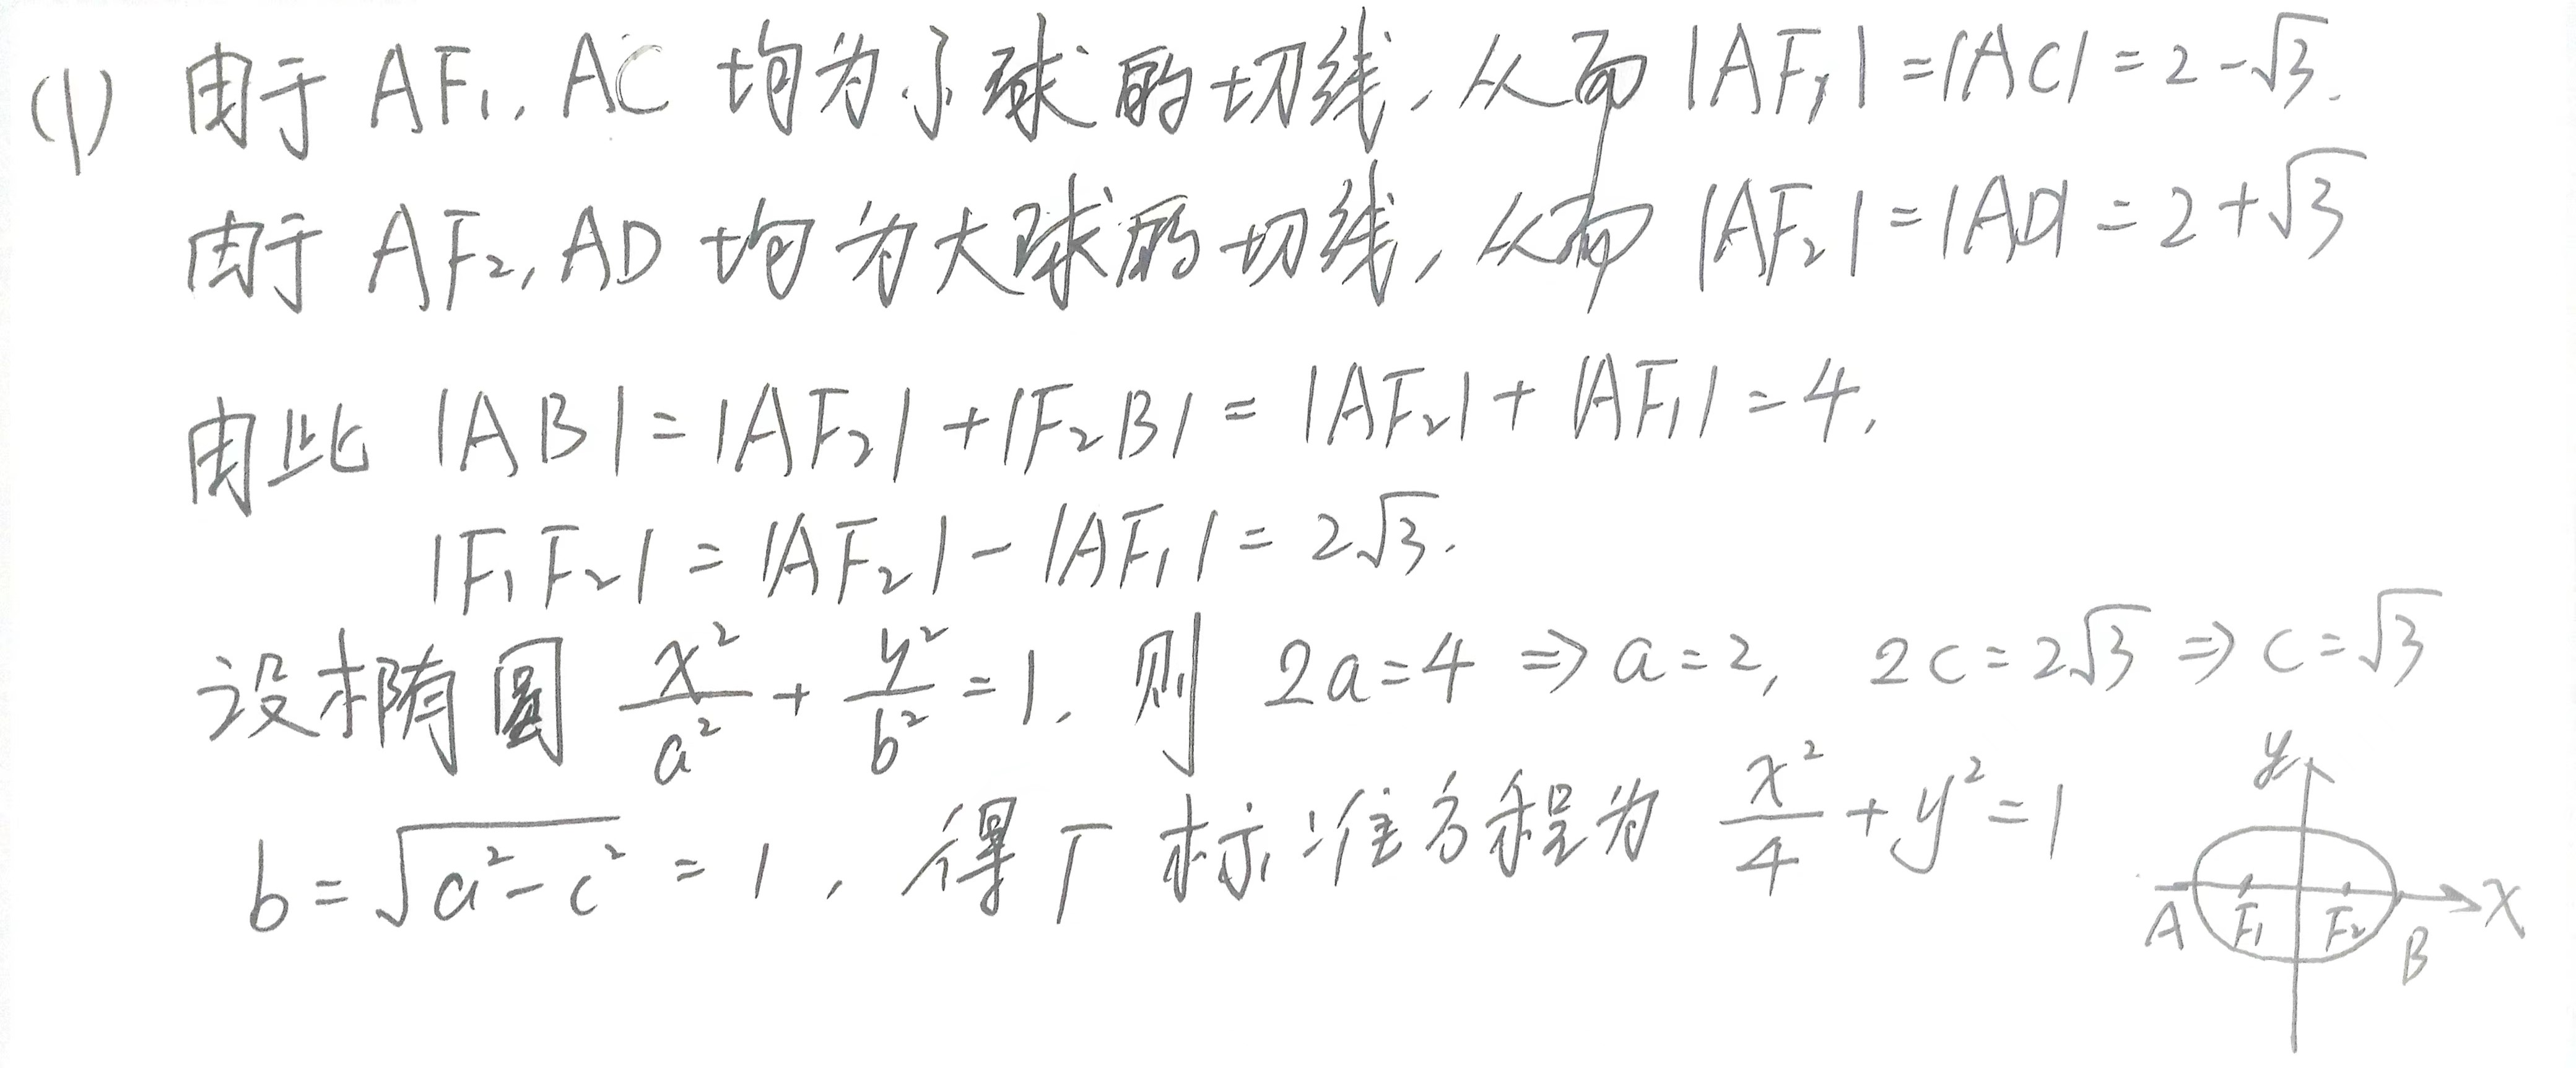 (1) 由于 AF₁, AC 均为小球的切线, 从而 |AF₁| = |AC| = 2-√3.
由于 AF₂, AD 均为大球的切线, 从而 |AF₂| = |AD| = 2+√3
由此 |AB| = |AF₂| + |F₂B| = |AF₂| + |AF₁| = 4,
|F₁F₂| = |AF₂| - |AF₁| = 2√3.
设椭圆 x²/a² + y²/b² = 1, 则 2a=4 ⇒ a=2, 2c=2√3 ⇒ c=√3
b = √(a²-c²) = 1, 得 Γ 标准方程为 x²/4 + y² = 1
y
x
A F₁ F₂ B